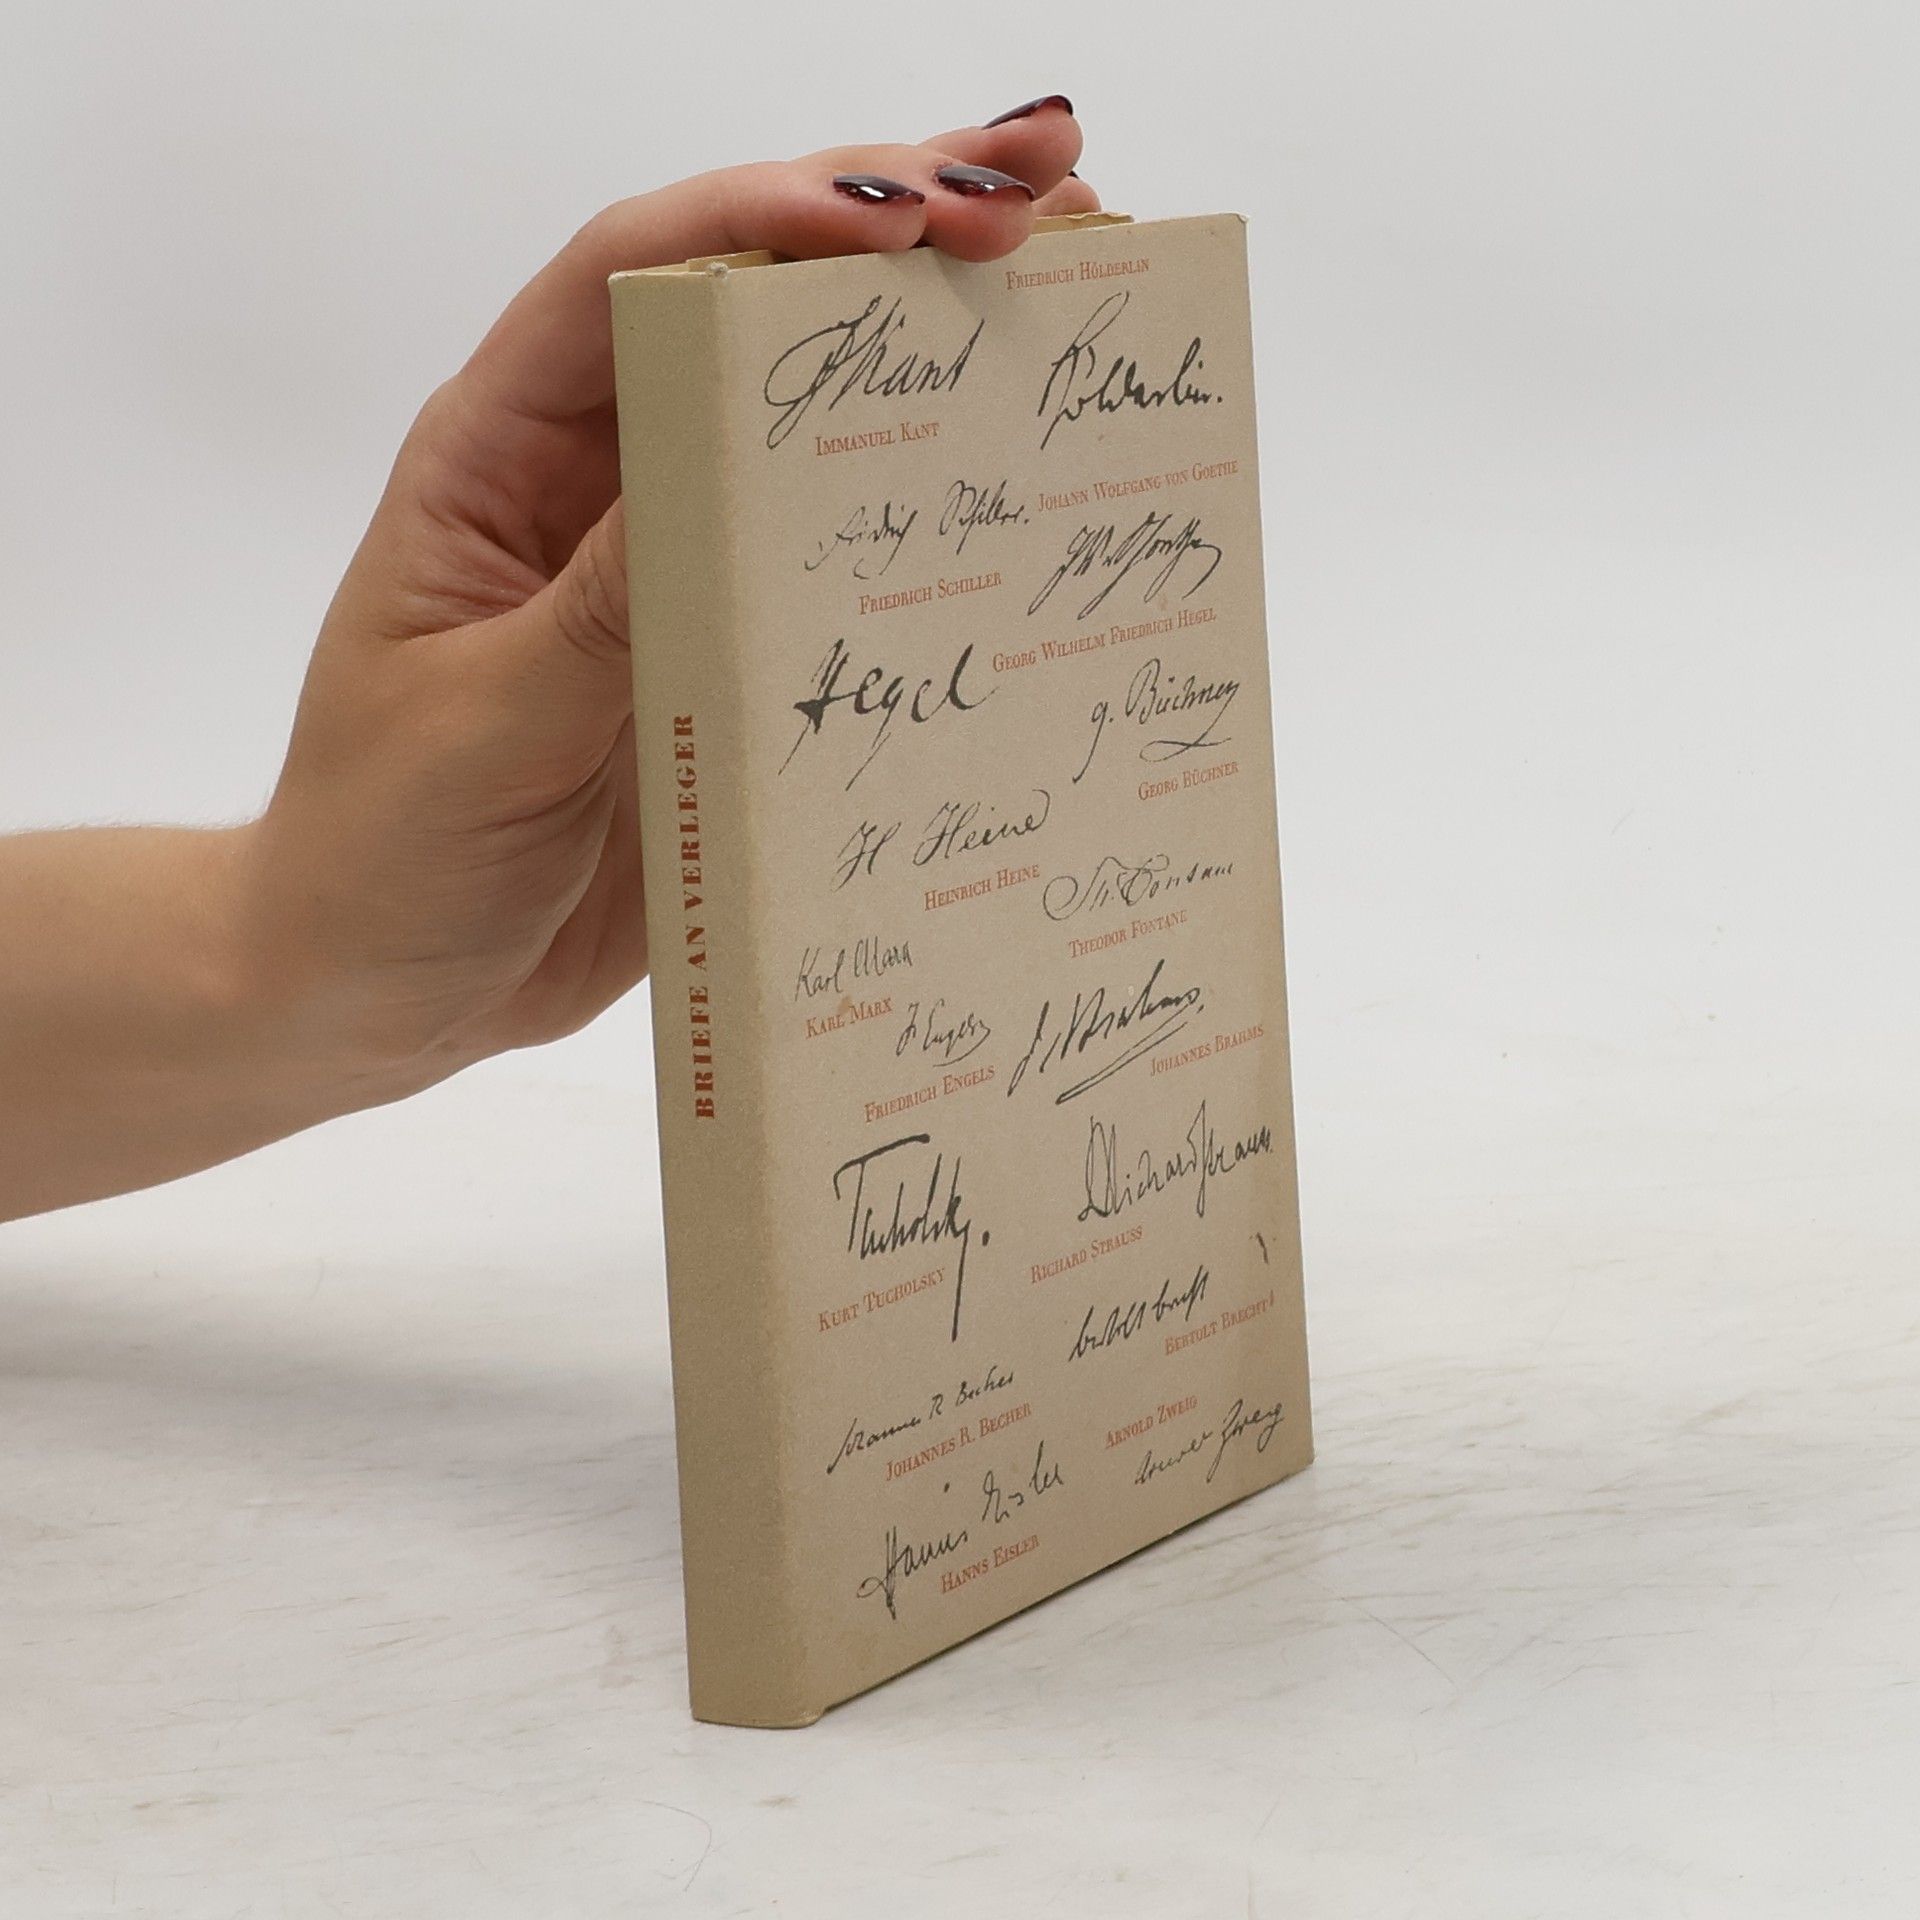 BRIEFE AN VERLEGER
FRIEDRICH HÖLDERLIN
JKant
Hölderlin.
IMMANUEL KANT
JOHANN WOLFGANG VON GOETHE
Fridrich Schiller.
JWvGoethe
FRIEDRICH SCHILLER
GEORG WILHELM FRIEDRICH HEGEL
Hegel
G. Büchner
GEORG BÜCHNER
H Heine
HEINRICH HEINE
Th. Fontane
THEODOR FONTANE
Karl Marx
KARL MARX
F. Engels
FRIEDRICH ENGELS
J. Brahms.
JOHANNES BRAHMS
Tucholsky.
KURT TUCHOLSKY
Richard Strauss.
RICHARD STRAUSS
bertolt brecht
BERTOLT BRECHT
Johannes R Becher
JOHANNES R. BECHER
ARNOLD ZWEIG
Arnold Zweig
Hanns Eisler
HANNS EISLER